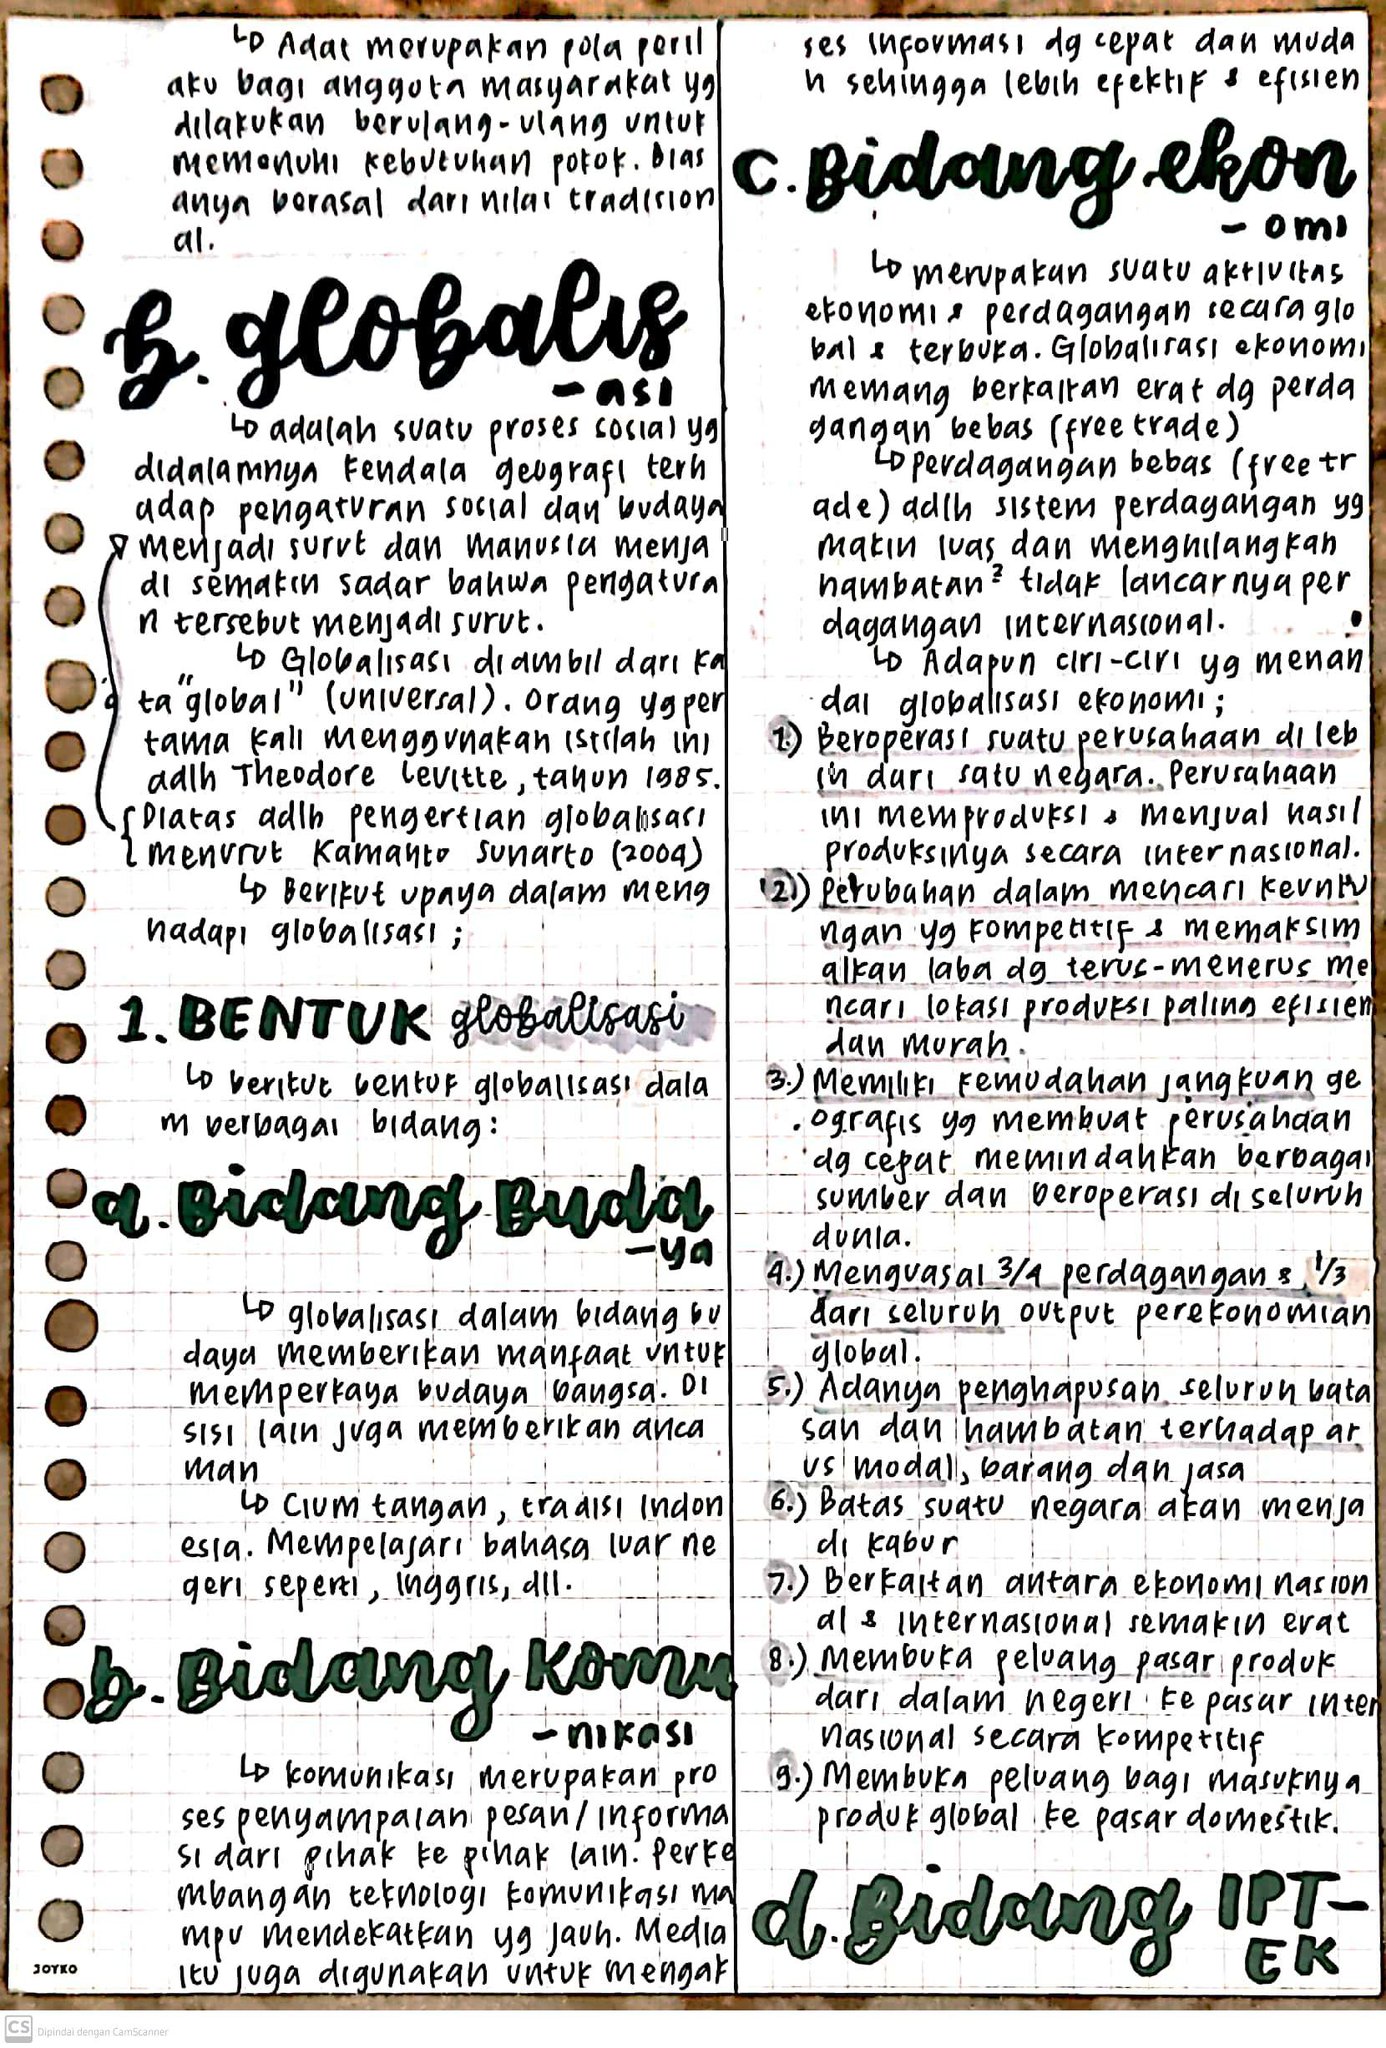 ↳ Adat merupakan pola peril
aku bagi anggota masyarakat yg
dilakukan berulang-ulang untuk
memenuhi kebutuhan pokok. Bias
anya berasal dari nilai tradision
al.
b. globalis
-asi
↳ adalah suatu proses sosial yg
didalamnya kendala geografi terh
adap pengaturan sosial dan budaya
menjadi surut dan manusia menja
di semakin sadar bahwa pengatura
n tersebut menjadi surut.
↳ Globalisasi diambil dari ka
ta "global" (universal). Orang yg per
tama kali menggunakan istilah ini
adlh Theodore Levitte, tahun 1985.
Diatas adlh pengertian globalisasi
menurut Kamanto Sunarto (2004)
↳ Berikut upaya dalam meng
hadapi globalisasi;
1. BENTUK globalisasi
↳ berikut bentuk globalisasi dala
m berbagai bidang:
a. Bidang Buda
-ya
↳ globalisasi dalam bidang bu
daya memberikan manfaat untuk
memperkaya budaya bangsa. Di
sisi lain juga memberikan anca
man
↳ Cium tangan, tradisi Indon
esia. Mempelajari bahasa luar ne
geri seperti, Inggris, dll.
b. Bidang Komu
-nikasi
↳ komunikasi merupakan pro
ses penyampaian pesan/informa
si dari pihak ke pihak lain. Perke
mbangan teknologi komunikasi ma
mpu mendekatkan yg jauh. Media
itu juga digunakan untuk mengak
JOYKO
ses informasi dg cepat dan muda
h sehingga lebih efektif & efisien
c. Bidang ekon
- omi
↳ merupakan suatu aktivitas
ekonomi & perdagangan secara glo
bal & terbuka. Globalisasi ekonomi
memang berkaitan erat dg perda
gangan bebas (free trade)
↳ perdagangan bebas (free tr
ade) adlh sistem perdagangan yg
makin luas dan menghilangkan
hambatan² tidak lancarnya per
dagangan internasional.
↳ Adapun ciri-ciri yg menan
dai globalisasi ekonomi;
1.) Beroperasi suatu perusahaan di leb
ih dari satu negara. Perusahaan
ini memproduksi & menjual hasil
produksinya secara internasional.
2.) Perubahan dalam mencari keuntu
ngan yg kompetitif & memaksim
alkan laba dg terus-menerus me
ncari lokasi produksi paling efisien
dan murah.
3.) Memiliki kemudahan jangkuan ge
ografis yg membuat perusahaan
dg cepat memindahkan berbagai
sumber dan beroperasi di seluruh
dunia.
4.) Menguasai 3/4 perdagangan & 1/3
dari seluruh output perekonomian
global.
5.) Adanya penghapusan seluruh bata
san dan hambatan terhadap ar
us modal, barang dan jasa
6.) Batas suatu negara akan menja
di kabur
7.) Berkaitan antara ekonomi nasion
al & internasional semakin erat
8.) Membuka peluang pasar produk
dari dalam negeri ke pasar inter
nasional secara kompetitif
9.) Membuka peluang bagi masuknya
produk global ke pasar domestik.
d. Bidang IPT-
EK
CS Dipindai dengan CamScanner